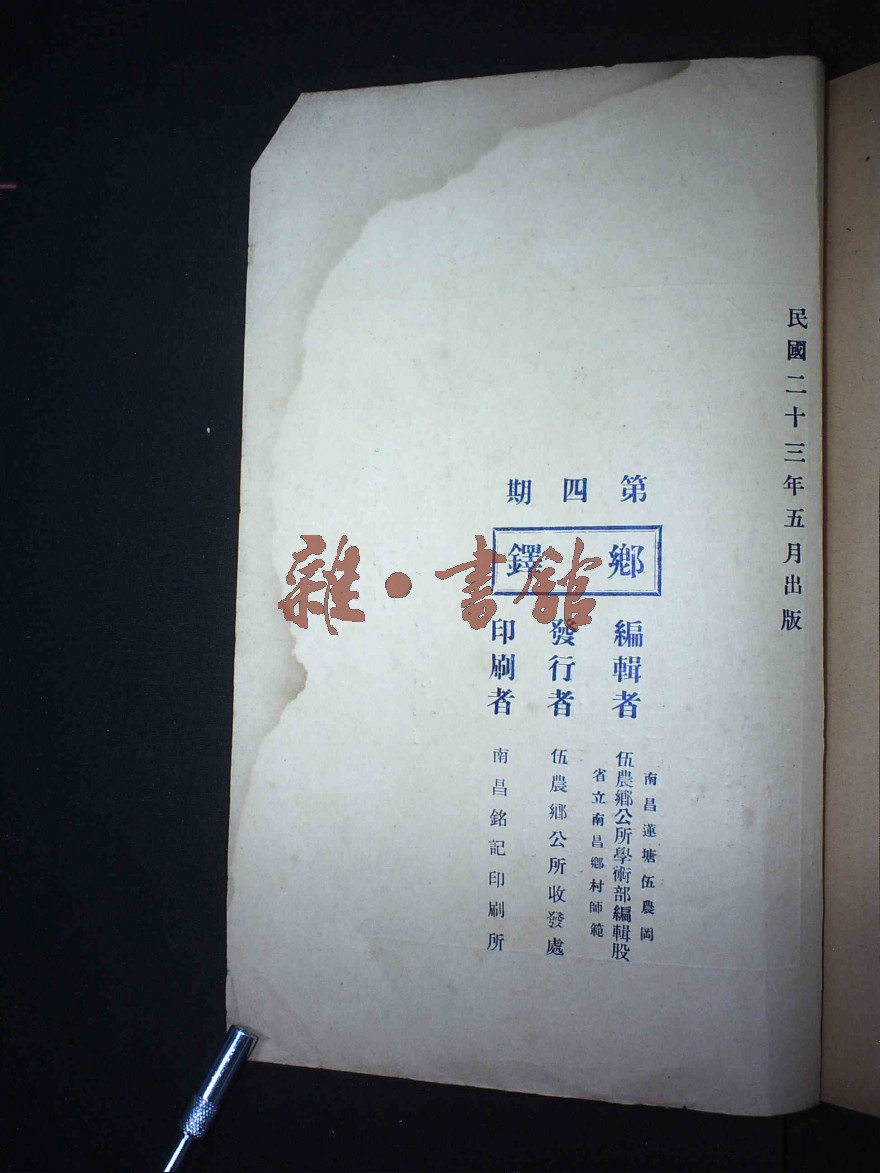 民國二十三年五月出版
第四期
鄉鐸
編輯者
南昌蓮塘伍農岡
伍農鄉公所學術部編輯股
省立南昌鄉村師範
發行者
伍農鄉公所收發處
印刷者
南昌銘記印刷所
雜·書館